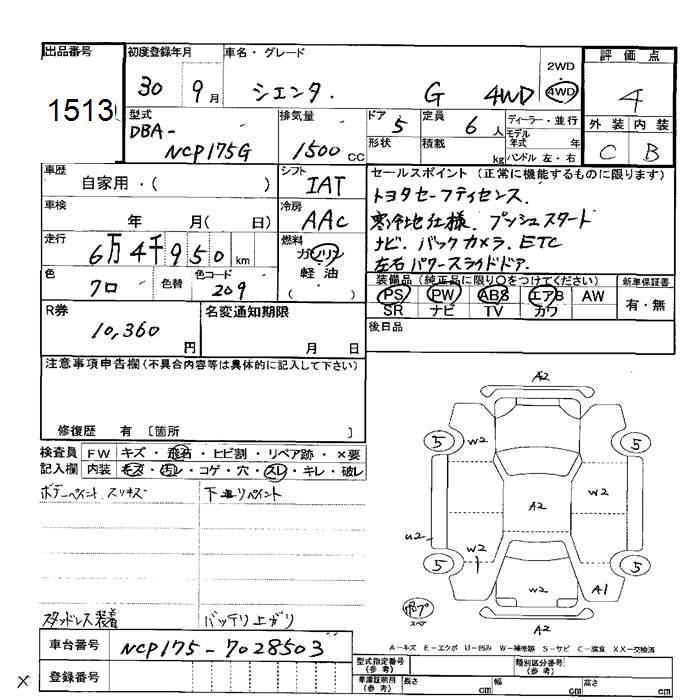 出品番号
1513
初度登録年月
30 9月
車名・グレード
シエンタ. G 4WD
2WD
4WD
評価点
4
外装 内装
C B
型式
DBA-
NCP175G
排気量
1500 cc
ドア
5
形状
定員
6人
積載
kg
ディーラー・並行
モデル
年式 年
ハンドル 左・右
車歴
自家用・( )
シフト
IAT
車検
年 月( 日)
冷房
AAC
走行
6万4千950 km
燃料
ガソリン
軽油
( )
色
クロ
色替
色コード
209
セールスポイント (正常に機能するものに限ります)
トヨタセーフティセンス.
寒冷地仕様. プッシュスタート
ナビ. バックカメラ. ETC
左右パワースライドドア.
装備品 (純正品に限り○をつけてください)
PS PW ABS エアB AW
SR ナビ TV カワ
新車保証書
有・無
後日品
R券
10,360
円
名変通知期限
月 日
注意事項申告欄(不具合内容等は具体的に記入して下さい)
修復歴 有 〔箇所 〕
検査員
記入欄
FW キズ・飛石・ヒビ割・リペア跡・×要
内装 キズ・汚レ・コゲ・穴・スレ・キレ・破レ
ボデーペイント スリキズ
下廻りペイント
スタッドレス装着
バッテリ上ガリ
車台番号
NCP175-7028503
登録番号
X
A2
5
W2
5
A2
W2
U2
W2
5
W2
A1
5
A2
スペア
A-キズ E-エクボ U-凹み W-補修跡 S-サビ C-腐食 XX-交換済
型式指定番号
(参考)
類別区分番号
(参考)
車庫証明用
(参考)
長さ cm
幅 cm
高さ cm